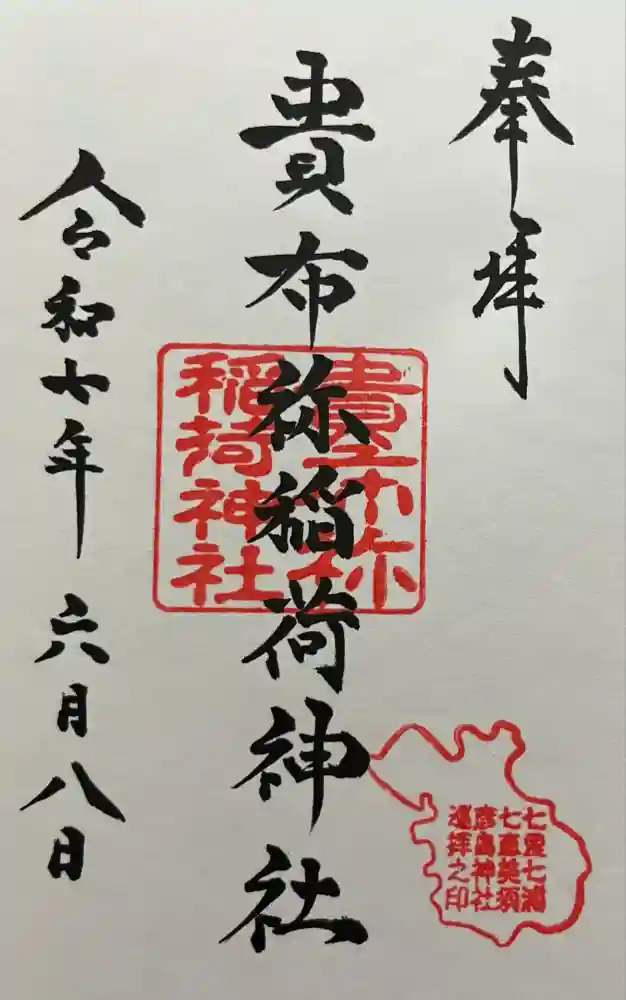 奉拝
貴布祢稲荷神社
令和七年 六月八日
貴布祢
稲荷神社
七里七浦
七恵美須
彦島神社
巡拝之印